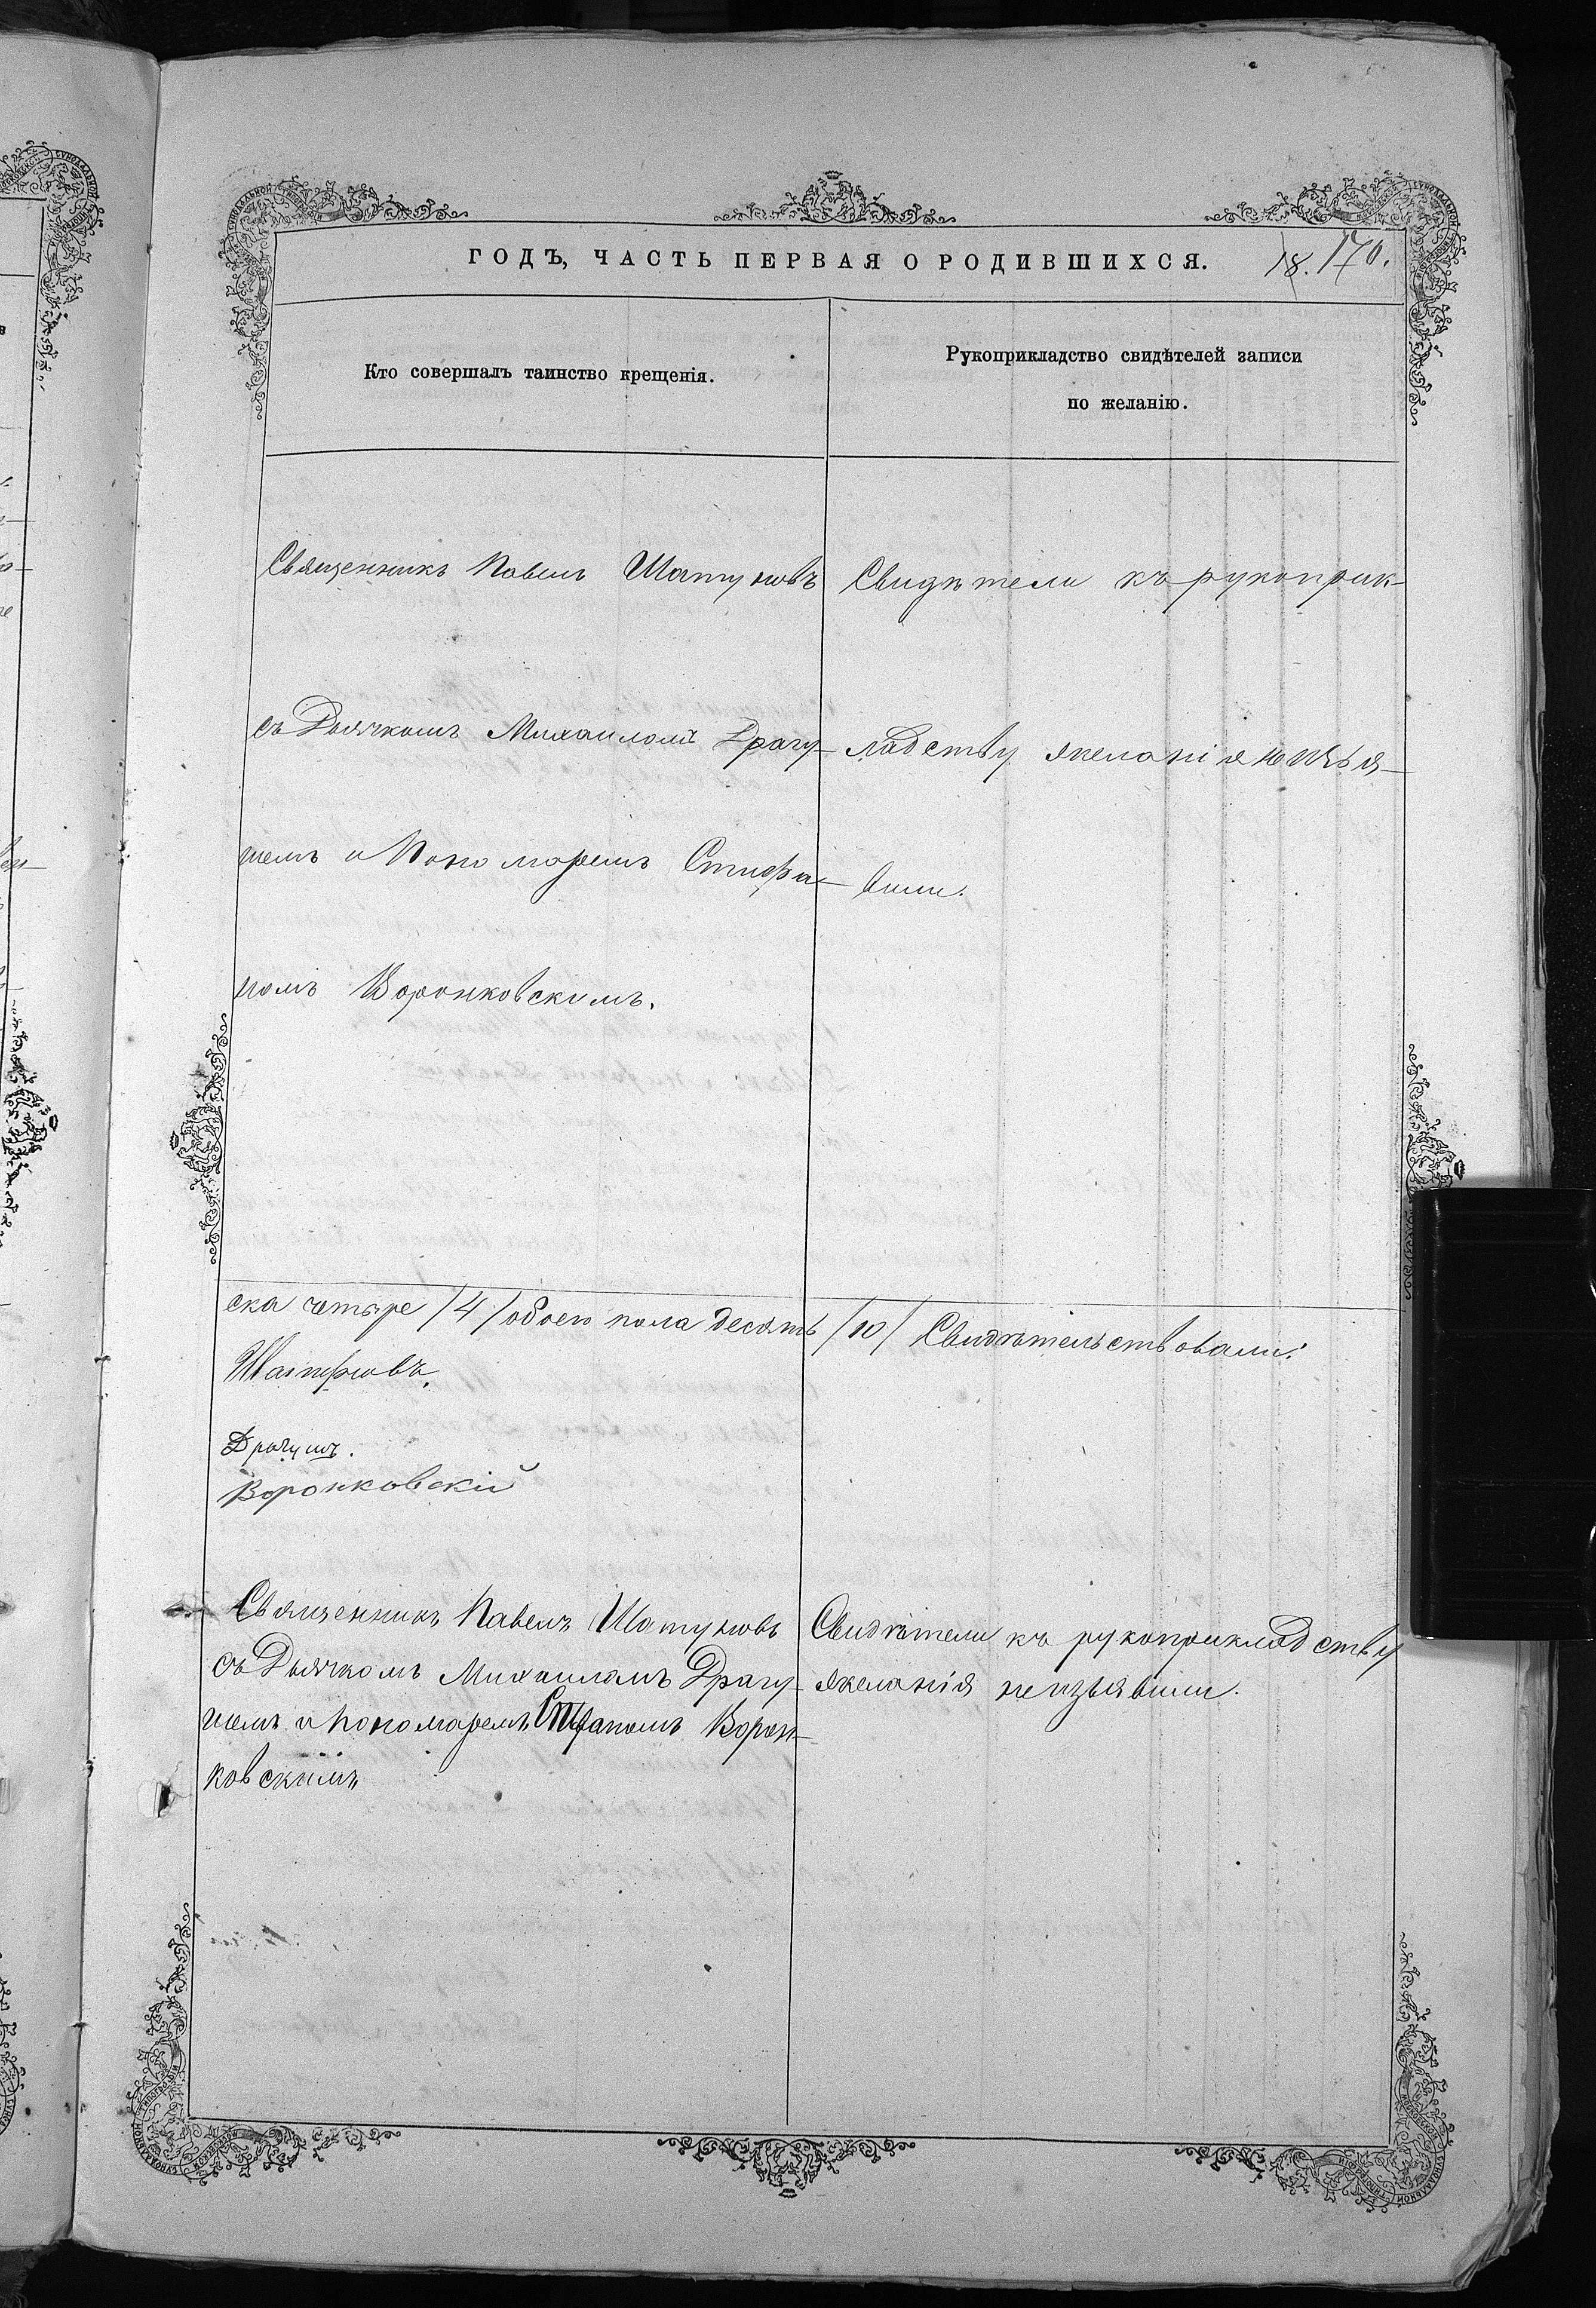 ГОДЪ, ЧАСТЬ ПЕРВАЯ О РОДИВШИХСЯ.
18. 170.
Кто совершалъ таинство крещенія.
Рукоприкладство свидѣтелей записи
по желанію.
Священникъ Павелъ Шатуновъ
съ Дьячкомъ Михаиломъ Драгу-
шемъ и Пономаремъ Стефа-
номъ Воронковскимъ.
Свидѣтели къ рукоприк-
ладству желанія неизъя-
вили.
ска четыре /4/ обоего пола десять /10/ Свидѣтельствовали:
Шатуновъ.
Драгушъ.
Воронковскій
Священникъ Павелъ Шатуновъ
съ Дьячкомъ Михаиломъ Драгу-
шемъ и Пономаремъ Стефаномъ Ворон-
ковскимъ
Свидѣтели къ рукоприкладству
желанія неизъявили.